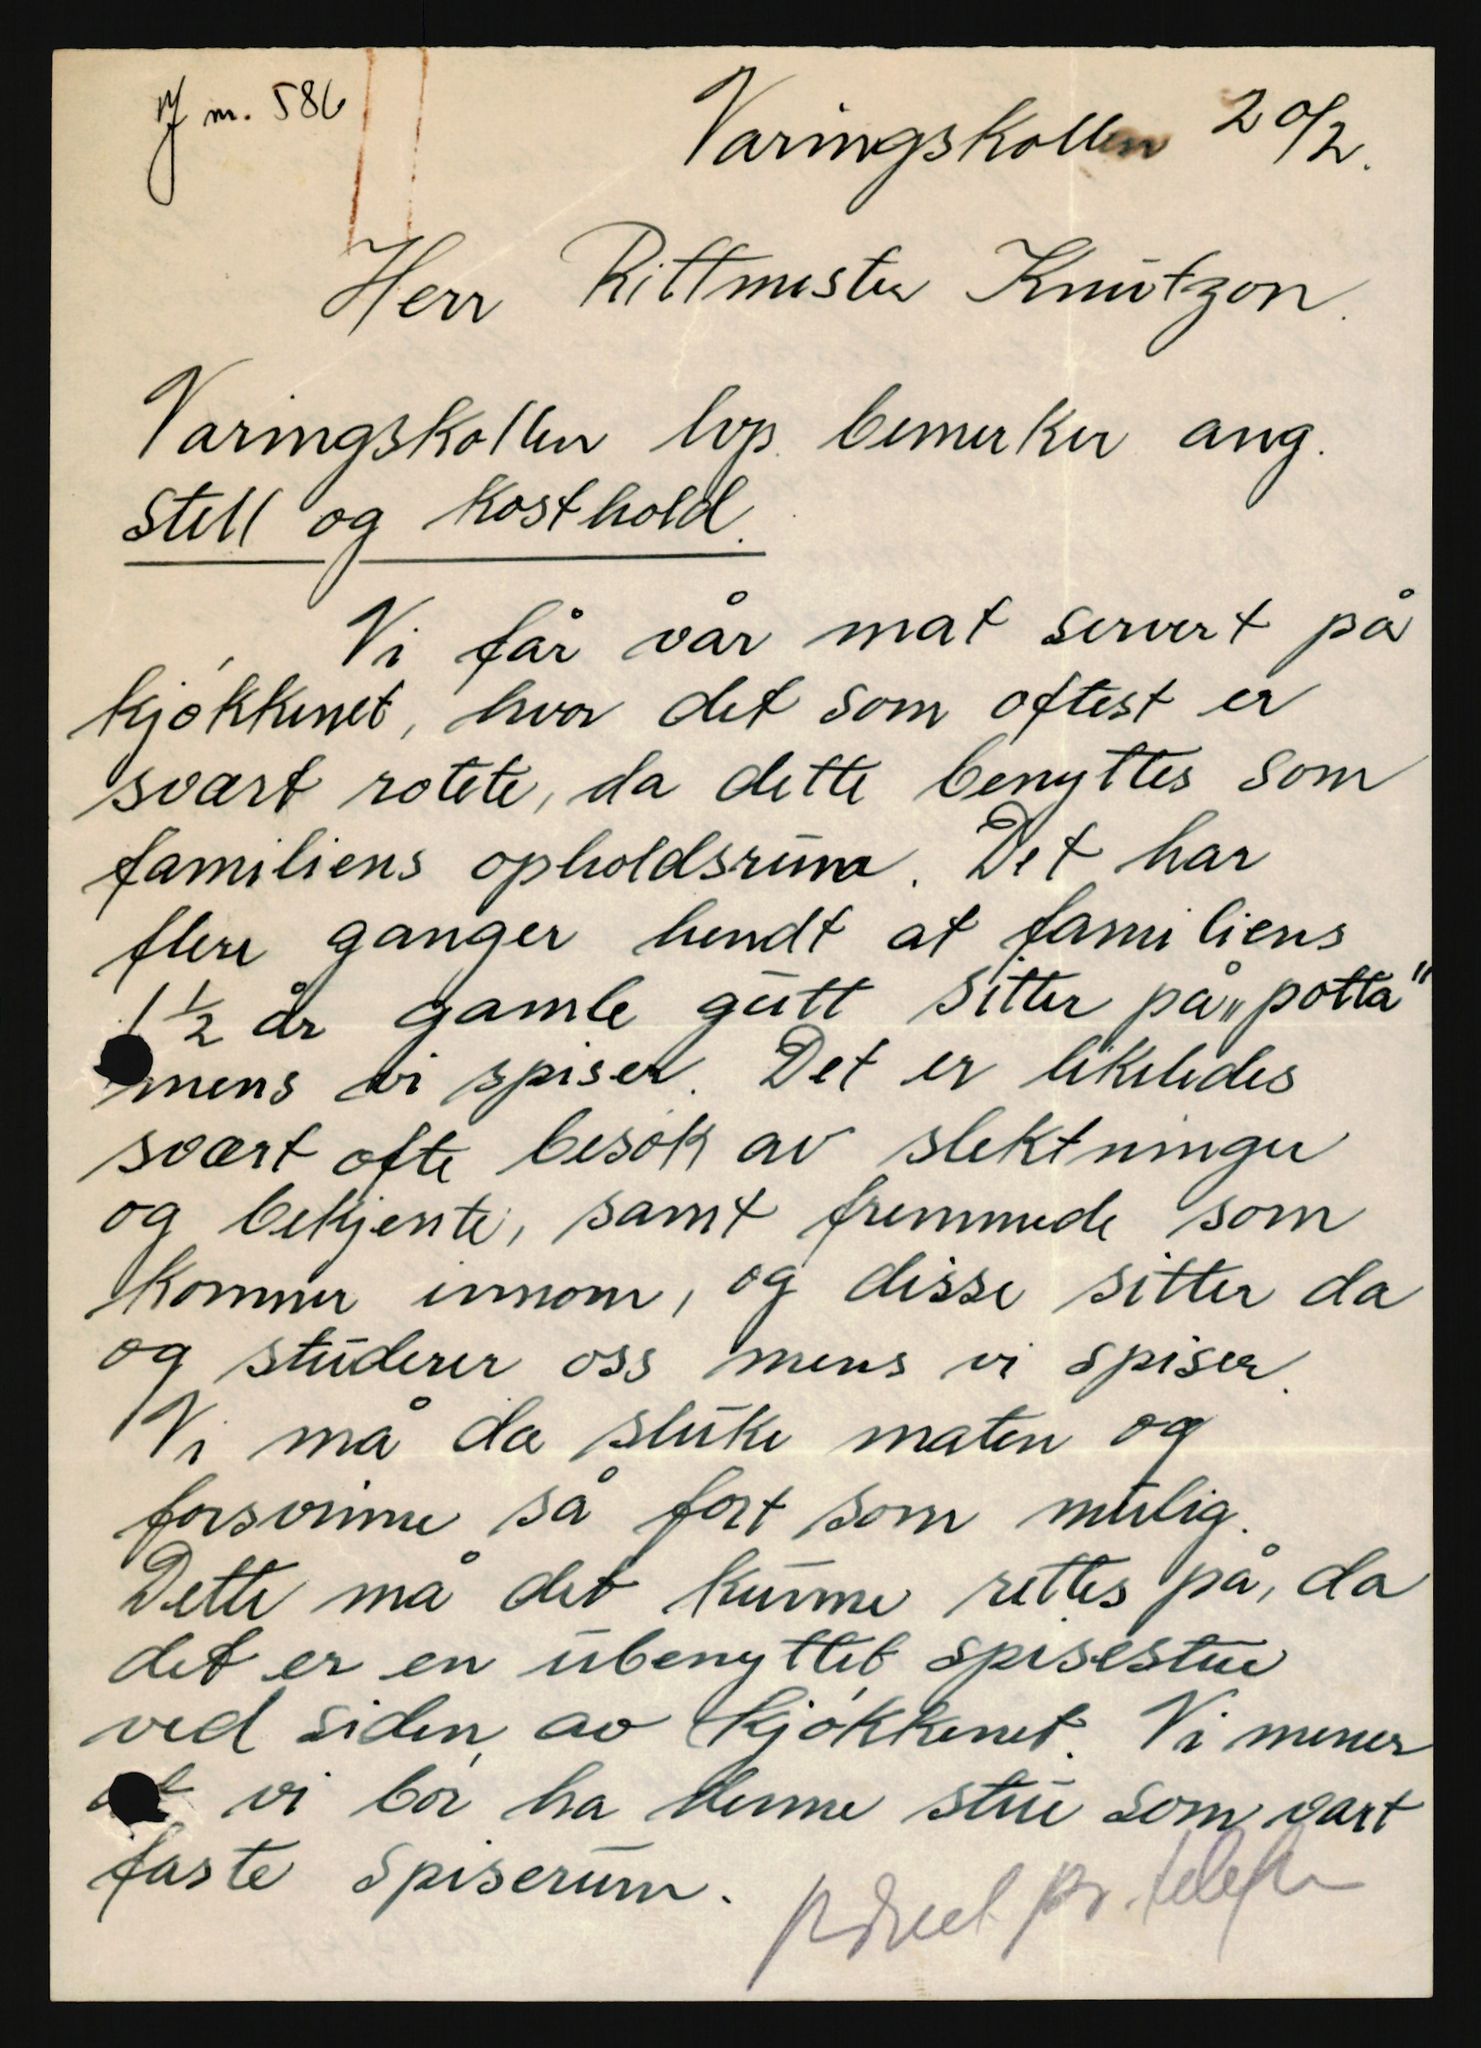 m. 586
Varingskollen 20/2.
Herr Rittmester Knutzon.
Varingskollen lvp. bemerker ang.
stell og kosthold.
Vi får vår mat servert på
kjøkkenet, hvor det som oftest er
svært rotete, da dette benyttes som
familiens opholdsrum. Det har
flere ganger hendt at familiens
1½ år gamle gutt sitter på „potta"
mens vi spiser. Det er likeledes
svært ofte besøk av slektninger
og bekjente, samt fremmede som
kommer innom, og disse sitter da
og studerer oss mens vi spiser.
Vi må da sluke maten og
forsvinne så fort som mulig.
Dette må det kunne rettes på, da
det er en ubenyttet spisestue
ved siden av kjøkkenet. Vi mener
at vi bør ha denne stue som vårt
faste spiserum.
pr. telefon